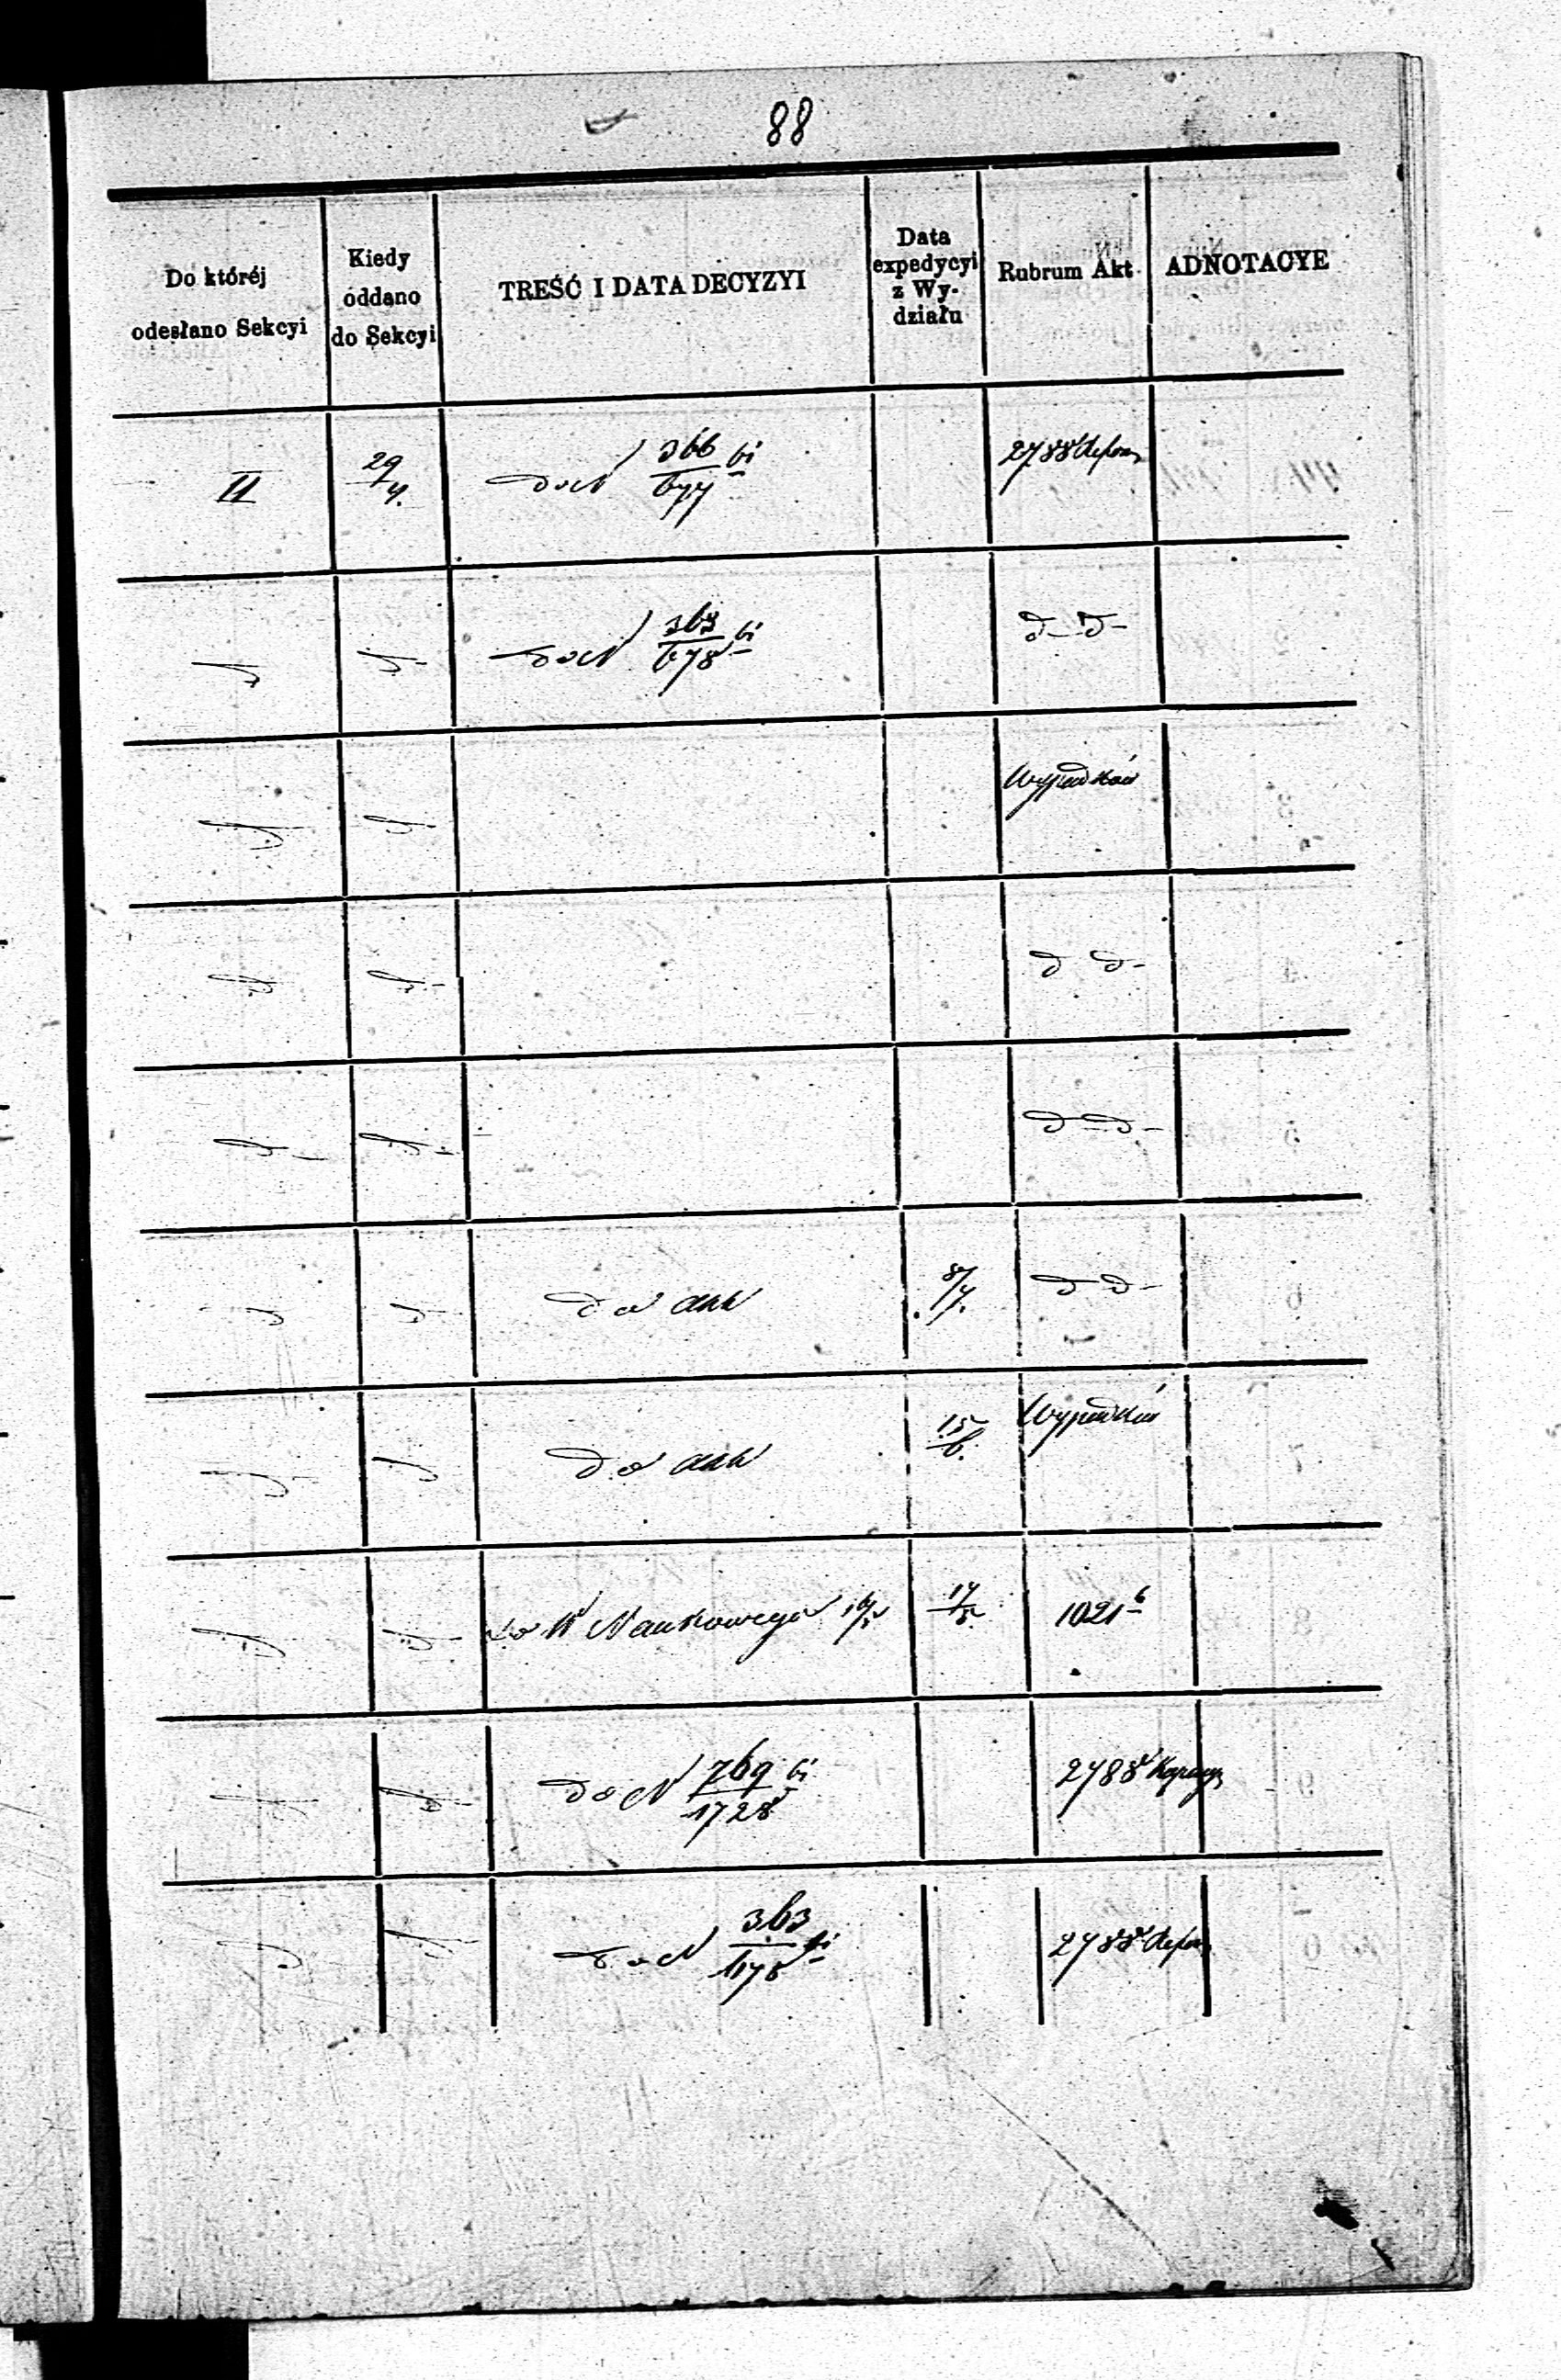 88
Do któréj
odesłano Sekcyi
Kiedy
oddano
do Sekcyi
TREŚĆ I DATA DECYZYI
Data
expedycyi
z Wy-
działu
Rubrum Akt
ADNOTACYE
II
29/4.
do N 366/677 bi
2788
do N 363/678 bi
d-d-
d
d-
Wypadków
d
d-
d
d-
d d-
d-
d-
d-d-
d
d-
do akt
8/7.
d d-
d
d
do akt
15/6.
Wypadków
d
d-
do W Naukowego
17/5.
1021 b
d
d-
do N 769/1728 bi
2788
d
d
do N 363/1178 bi
2788